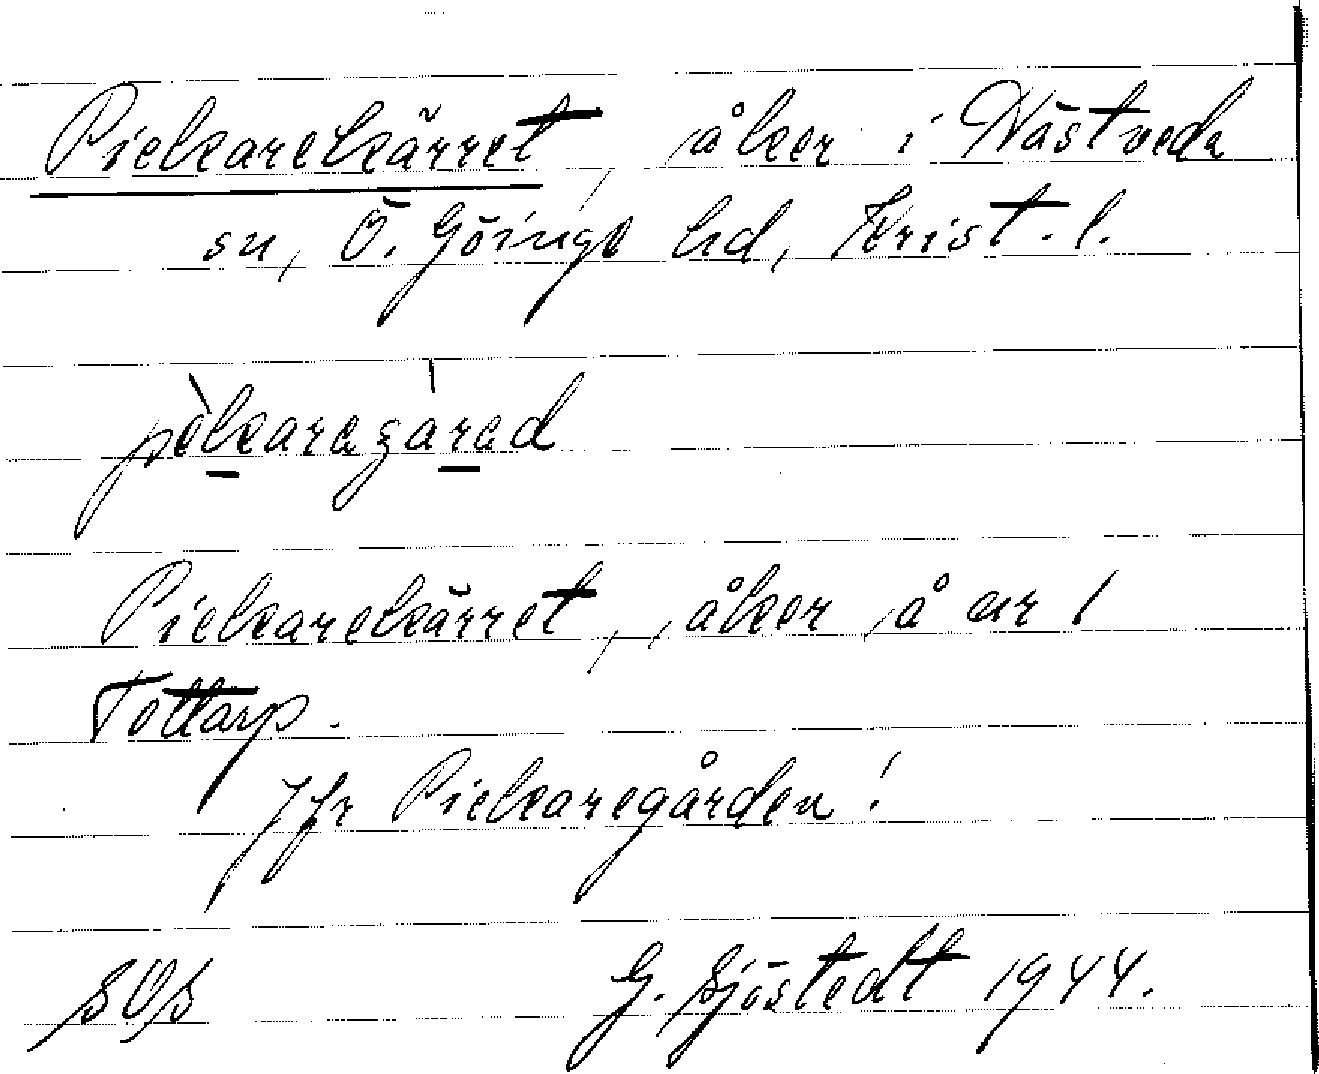 Piekarekärret, åker i Nästveda
sn, Ö. Göinge hd, Krist. l.
Piekarekärret, åker å nr 1
Tottarp.
Jfr Piekaregården!
SOS G. Sjöstedt 1944.